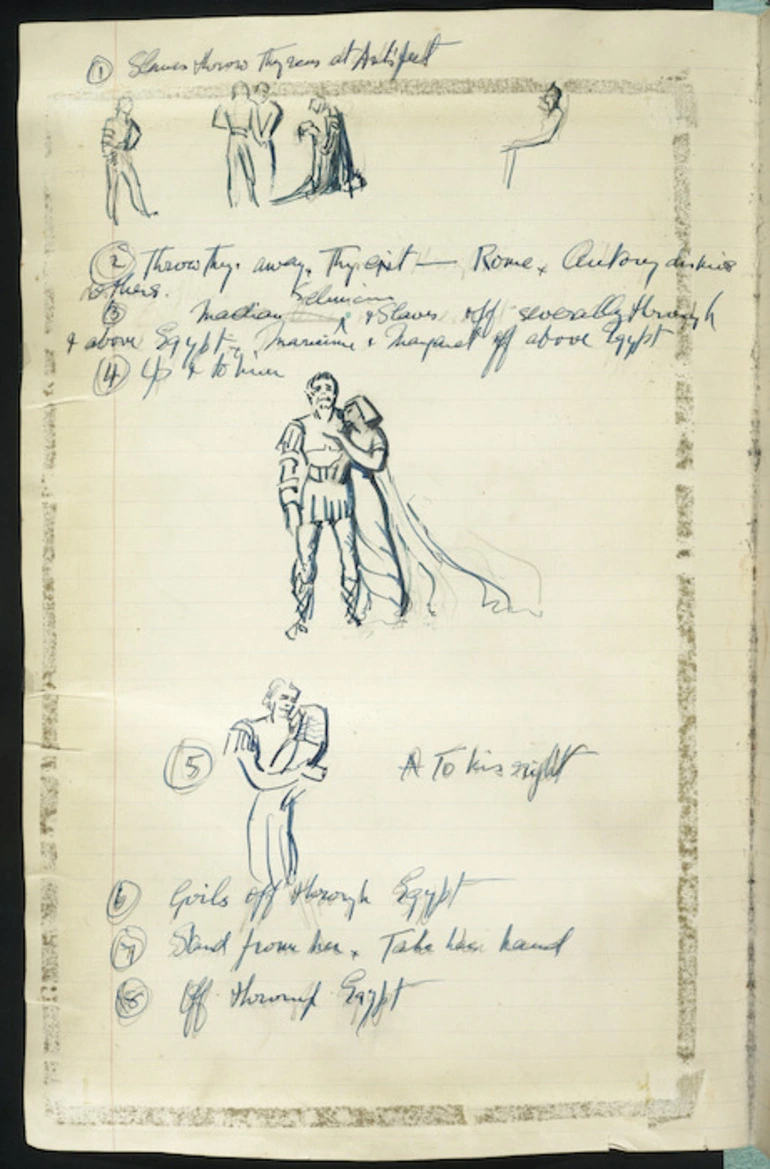 ① Slaves throw Thyreus at Ant's feet
② Throw Thy. away. Thy exit — Rome. Antony dismiss
others.
Selucius
③ Mardian & Slaves off severally through
& above Egypt. & Margaret off above Egypt
④ Up & to him
⑤ A To his right
⑥ Goils off through Egypt
⑦ Stand from her. Take her hand
⑧ Off through Egypt